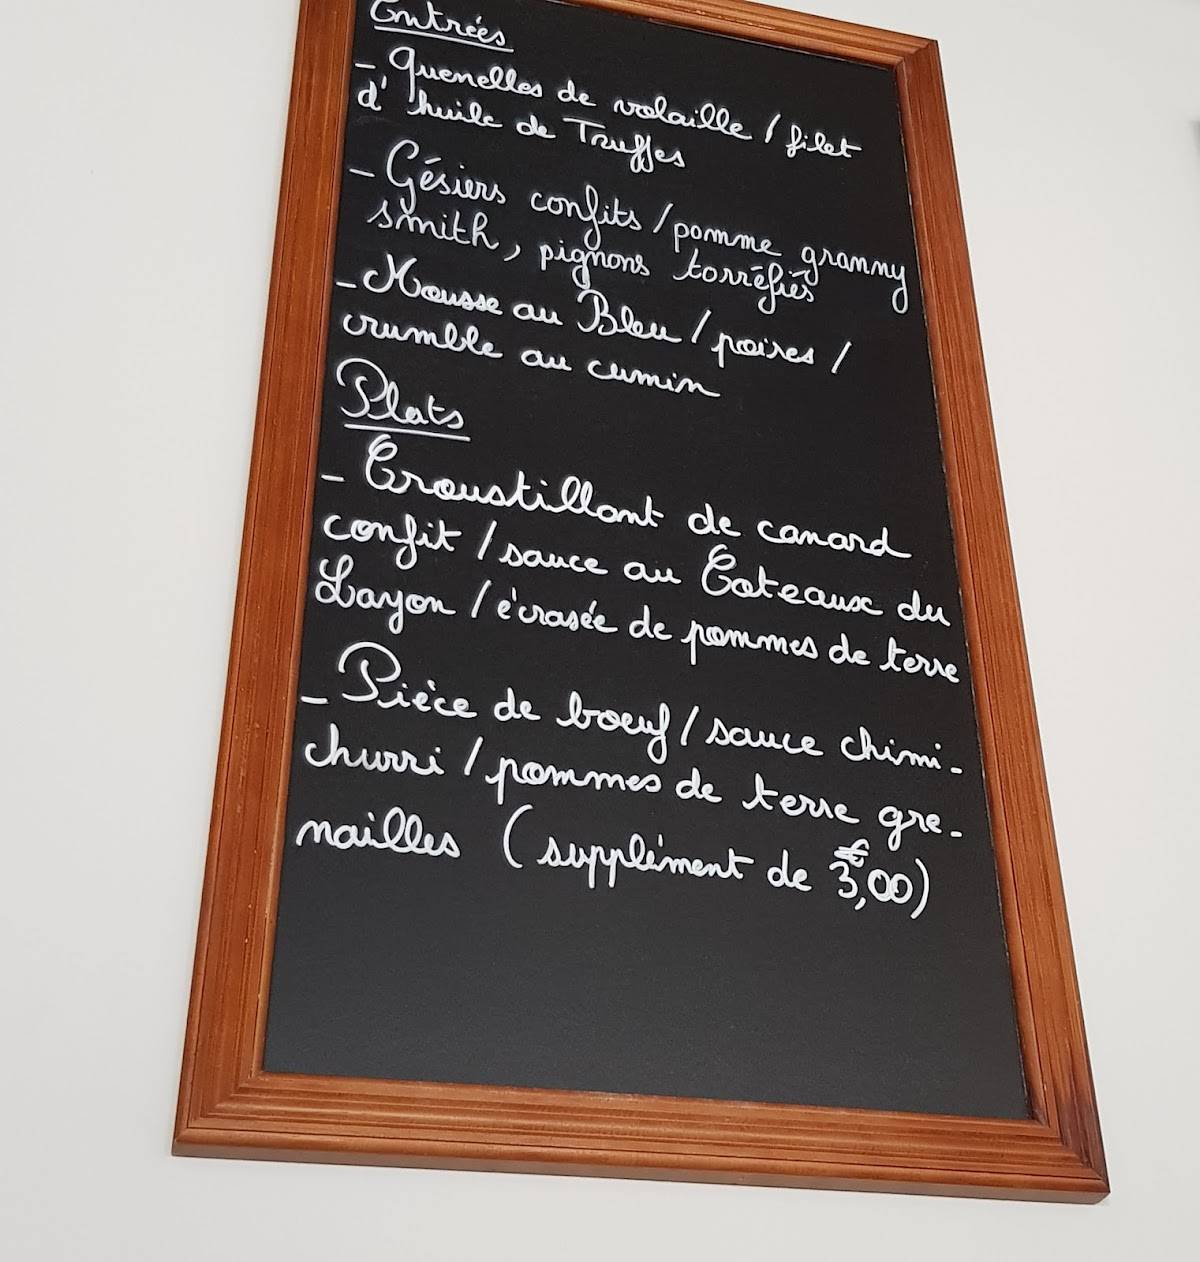 Entrées
- Quenelles de volaille / filet
d'huile de Truffes
- Gésiers confits / pomme granny
smith, pignons torréfiés
- Mousse au Bleu / poires /
crumble au cumin
Plats
- Croustillant de canard
confit / sauce au Coteaux du
Layon / écrasée de pommes de terre
- Pièce de boeuf / sauce chimi-
churri / pommes de terre gre-
nailles (supplément de 3,00€)